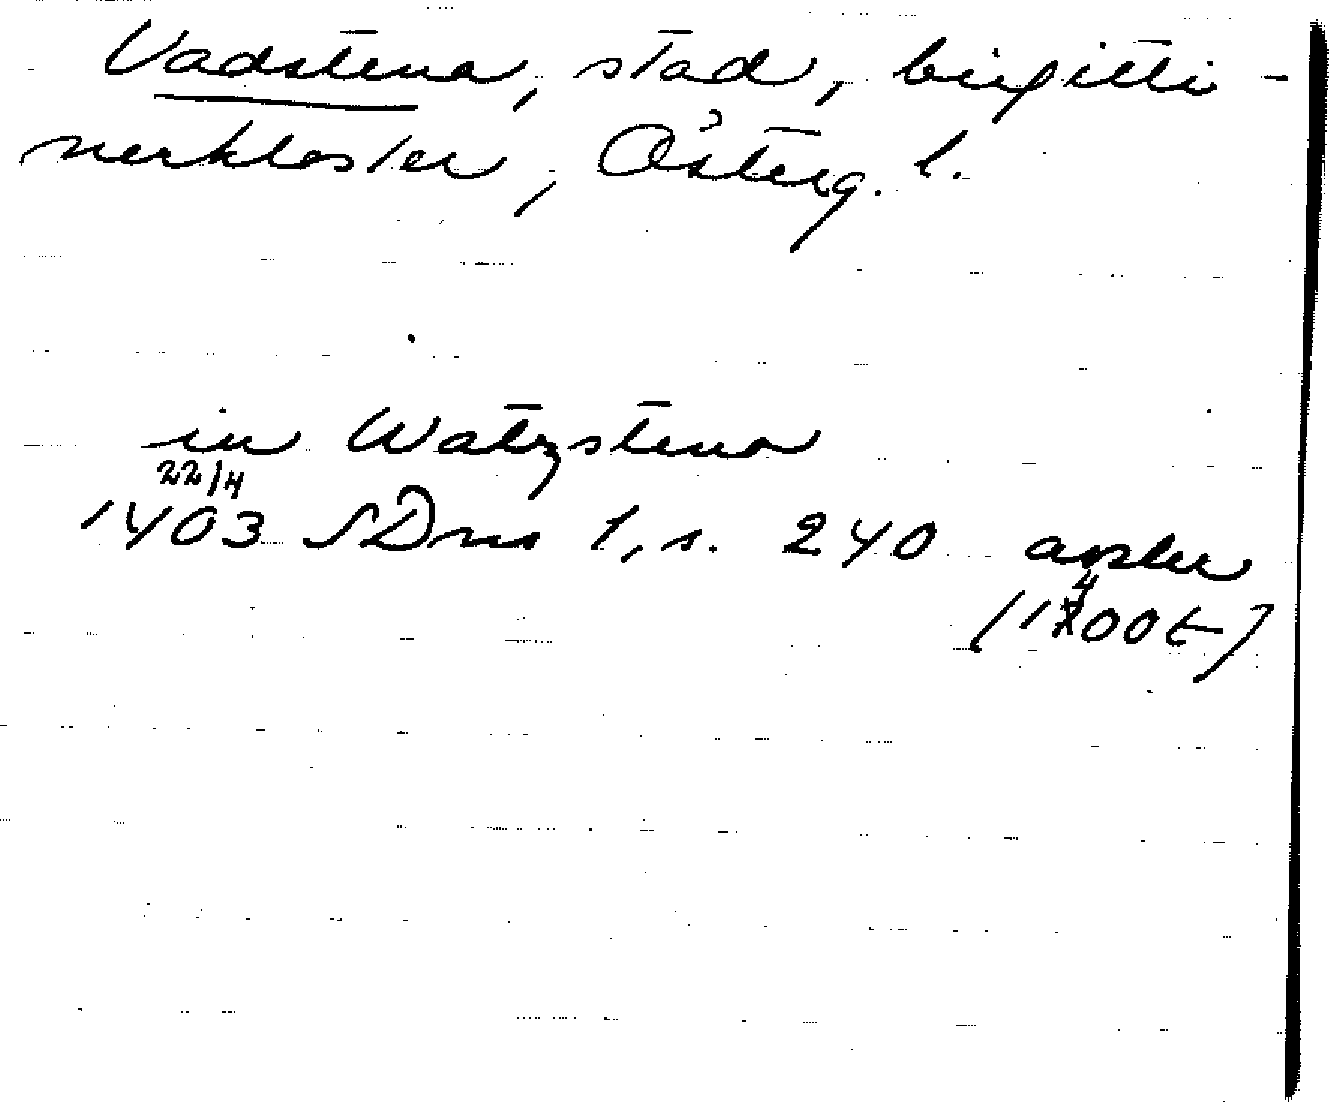 Vadstena, stad, birgitti-
nerkloster, Österg. l.
in Watzstena
22/4
1403 SDns 1, s. 240 avskr
(1400t)